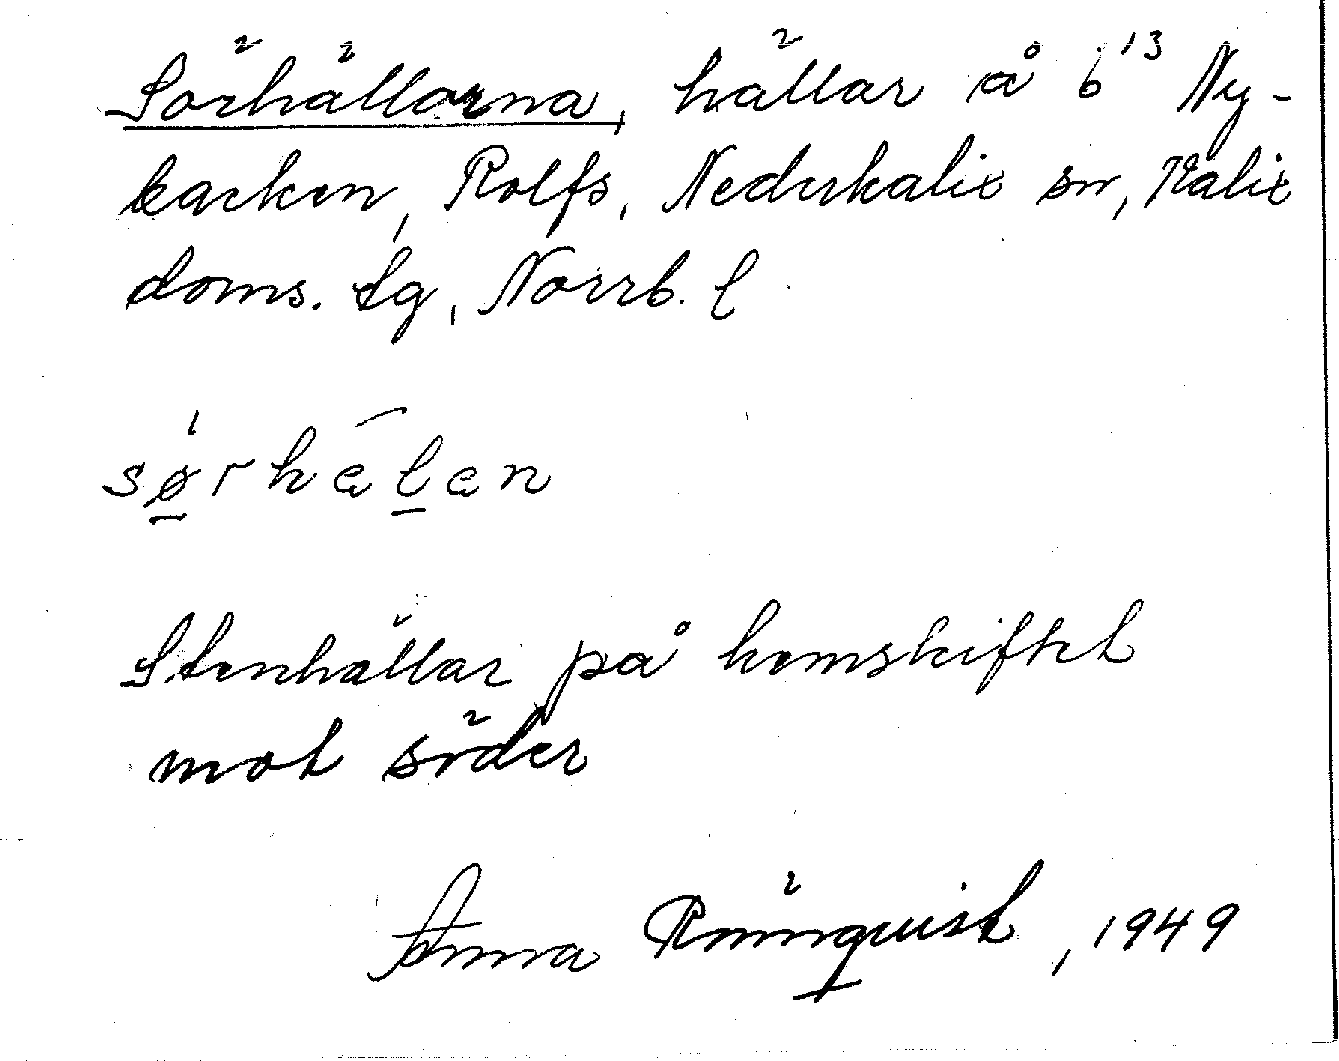 Sörhällarna, hällar å 6¹³ Ny-
backen, Rolfs, Nederkalix sn, Kalix
doms. tg, Norrb. l
sørhælæn
Stenhällar på hemskiftet
mot söder
Anna Rönnquist, 1949